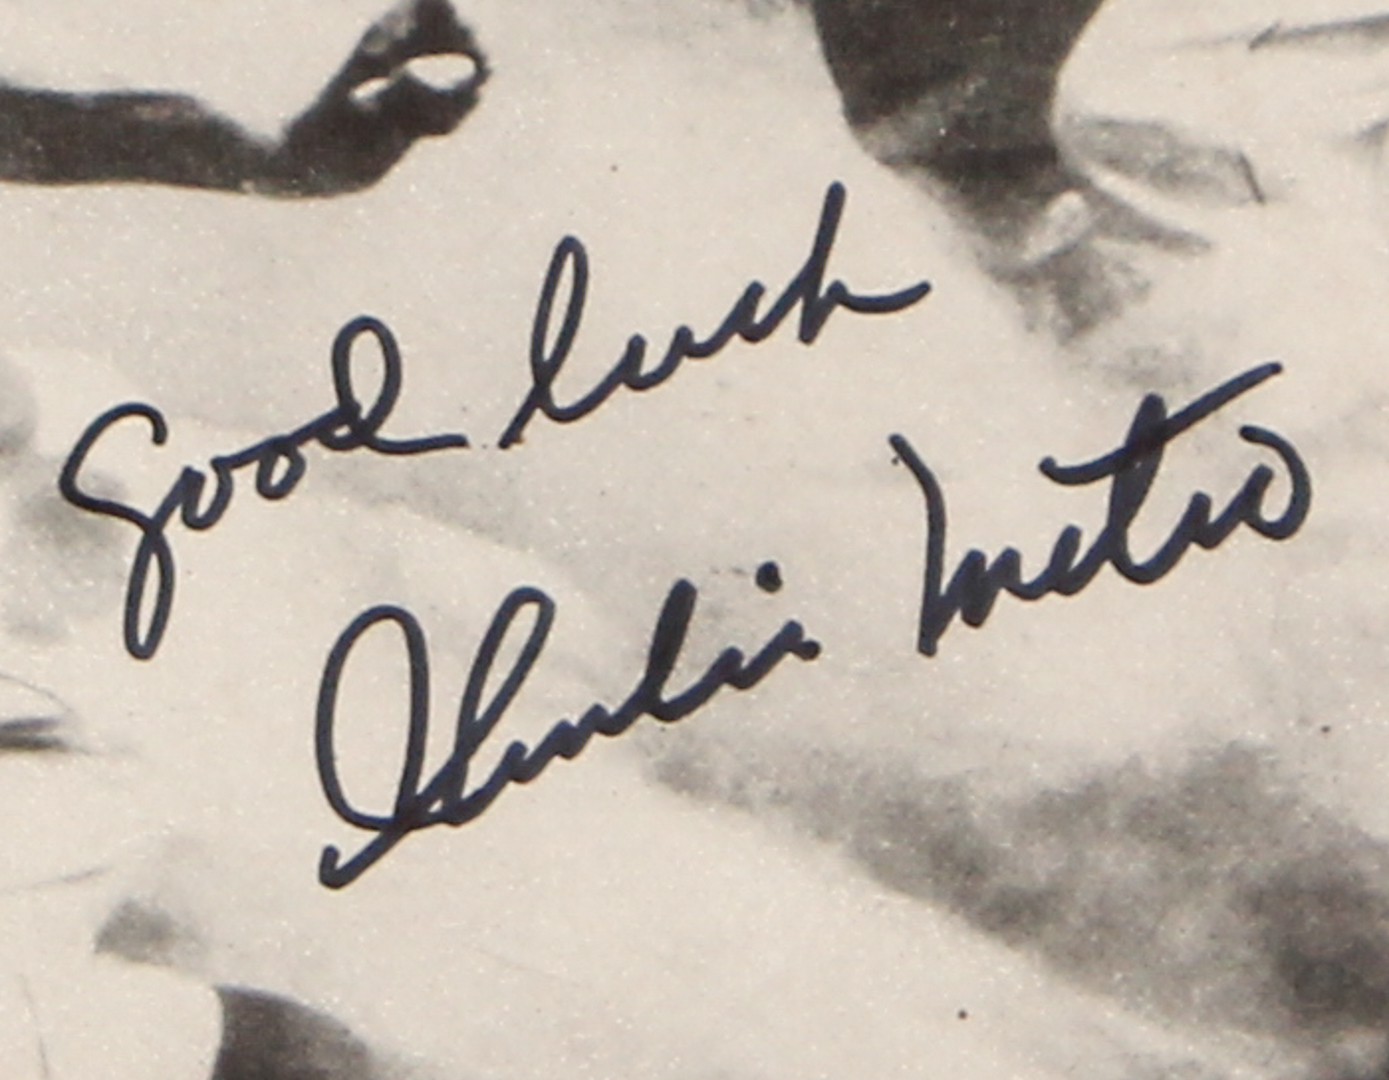 Good luck
Charlie Metro